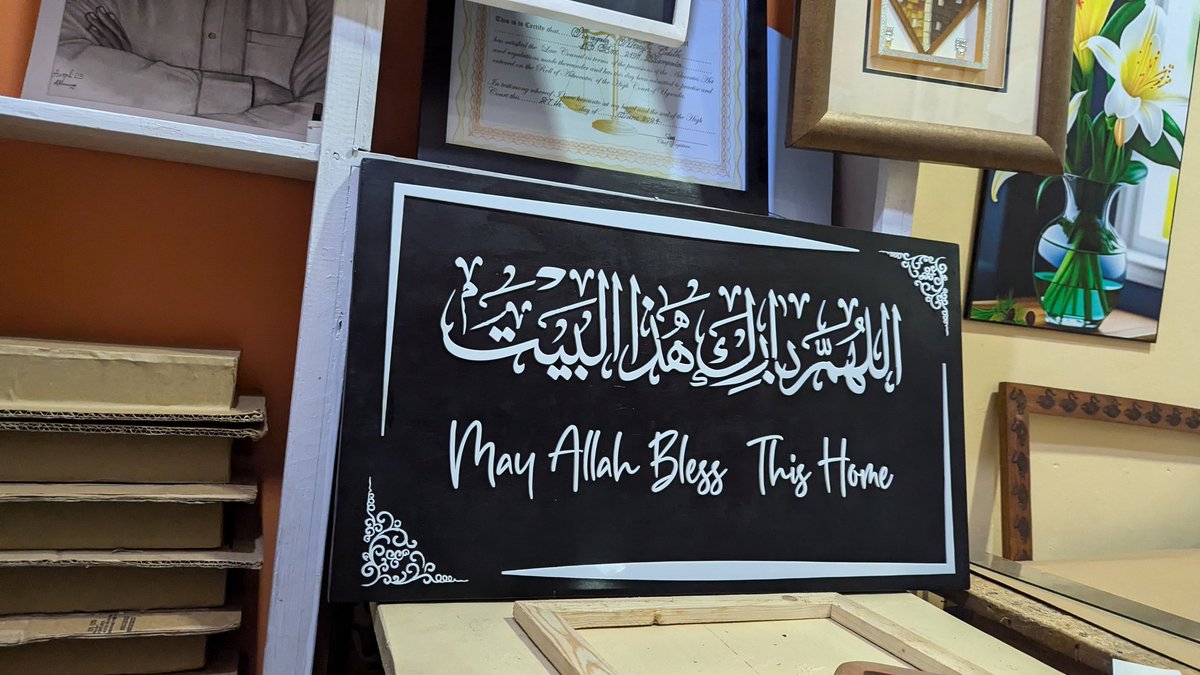 This is to Certify that
has satisfied the Law Council in terms of the provisions of the Advocates Act
and regulations made thereunder and has this day been admitted to practise and
entered on the Roll of Advocates, of the High Court of Uganda.
In testimony whereof, I have hereunto set my hand and the seal of the High
Court this day of
اللهُمَّ بَارِكْ هَٰذَا الْبَيْتَ
May Allah Bless This Home